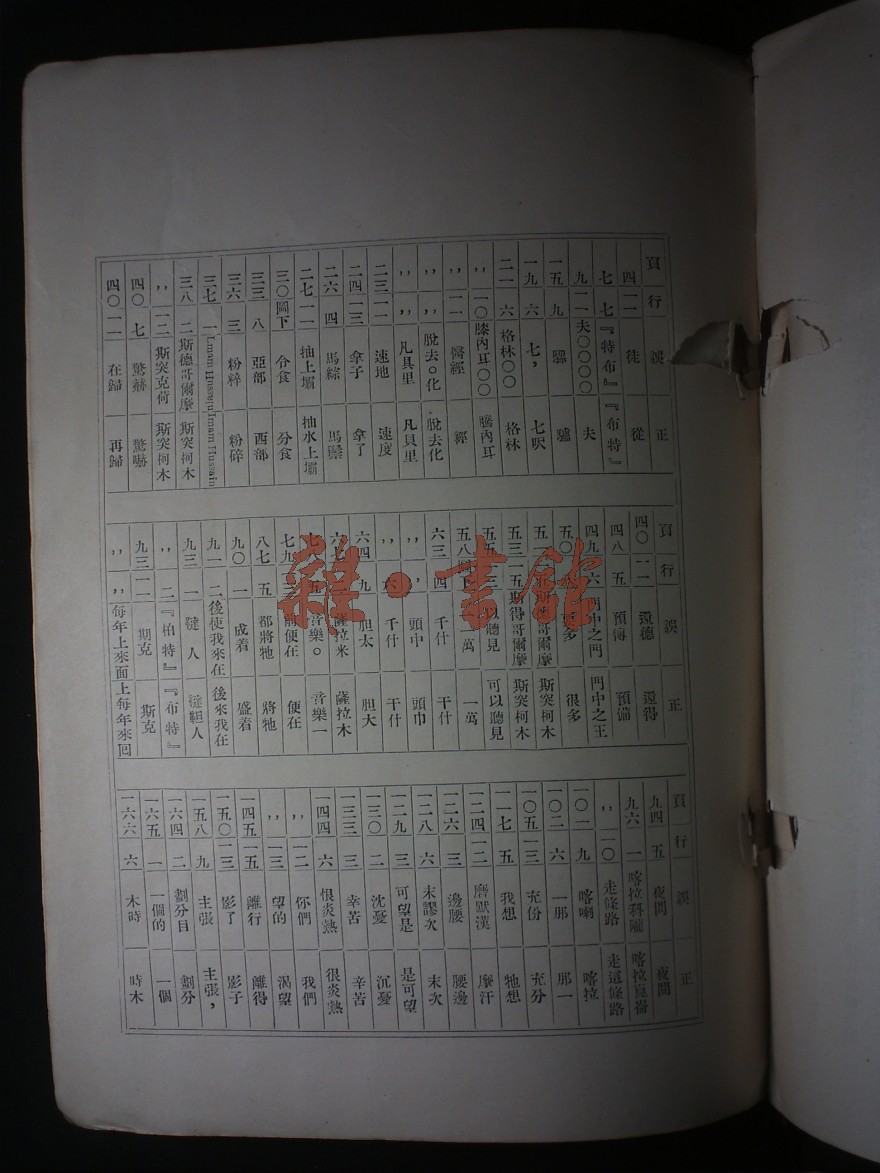 頁 行 誤 正
四 一一 徒 從
七 七 『特布』 『布特』
九 一一 夫〇〇〇〇 夫
一五 九 騾 驢
一九 六 七， 七呎
二一 六 格林〇〇 格林
,, 一〇 膝內耳〇〇 膝內耳
,, 一一 醫經 經
,, ,, 脫去。化 脫去化
,, ,, 凡具里 凡貝里
二三 一一 速地 速度
二四 一三 拿子 拿了
二六 四 馬綜 馬鬃
二七 一一 抽上壩 抽水上壩
三〇 圖下 令食 分食
三三 八 亞部 西部
三六 三 粉粹 粉碎
三七 一 Imam Husain
三八 二 斯德哥爾摩 斯突柯木
,, 一二 斯突克荷 斯突柯木
四〇 七 驚赫 驚嚇
四〇 一一 在歸 再歸
頁 行 誤 正
四〇 一一 還德 還得
四八 五 預傳 預備
四九 六 門中之門 門中之王
五〇 多 很多
五一 斯德哥爾摩 斯突柯木
五三 五 斯得哥爾摩 斯突柯木
五五 三 以聽見 可以聽見
五八 萬 一萬
六三 四 千什 干什
,, ,, 頭中 頭巾
,, 六 千什 干什
六四 九 胆太 胆大
六七 薩拉米 薩拉木
七八 音樂。 音樂一
七九 便在 便在
八七 五 都將牠 將牠
九〇 一 成着 盛着
九一 二 後使我來在 後來我在
九三 一 韃 人 韃靼人
,, 二 『柏特』 『布特』
九三 一一 期克 斯克
,, ,, 每年上來面上 每年來回
頁 行 誤 正
九四 五 夜問 夜間
九六 一 喀拉科隴 喀拉崑崙
,, 一〇 走條路 走這條路
一〇一 九 喀喇 喀拉
一〇二 六 一那 那一
一〇五 一三 充份 充分
一一七 五 我想 牠想
一二四 一二 磨默漢 摩汗
一二六 三 邊腰 腰邊
一二八 六 末謬次 末次
一二九 三 可望是 是可望
一三〇 二 沈憂 沉憂
一三三 三 幸苦 辛苦
一四四 六 恨炎熱 很炎熱
,, 一二 你們 我們
,, 一三 望的 渴望
一四五 一五 離行 離得
一五〇 一三 影了 影子
一五八 九 主張 主張，
一六四 二 劃分目 劃分
一六五 一 一個的 一個
一六六 六 木時 時木
雜·書館